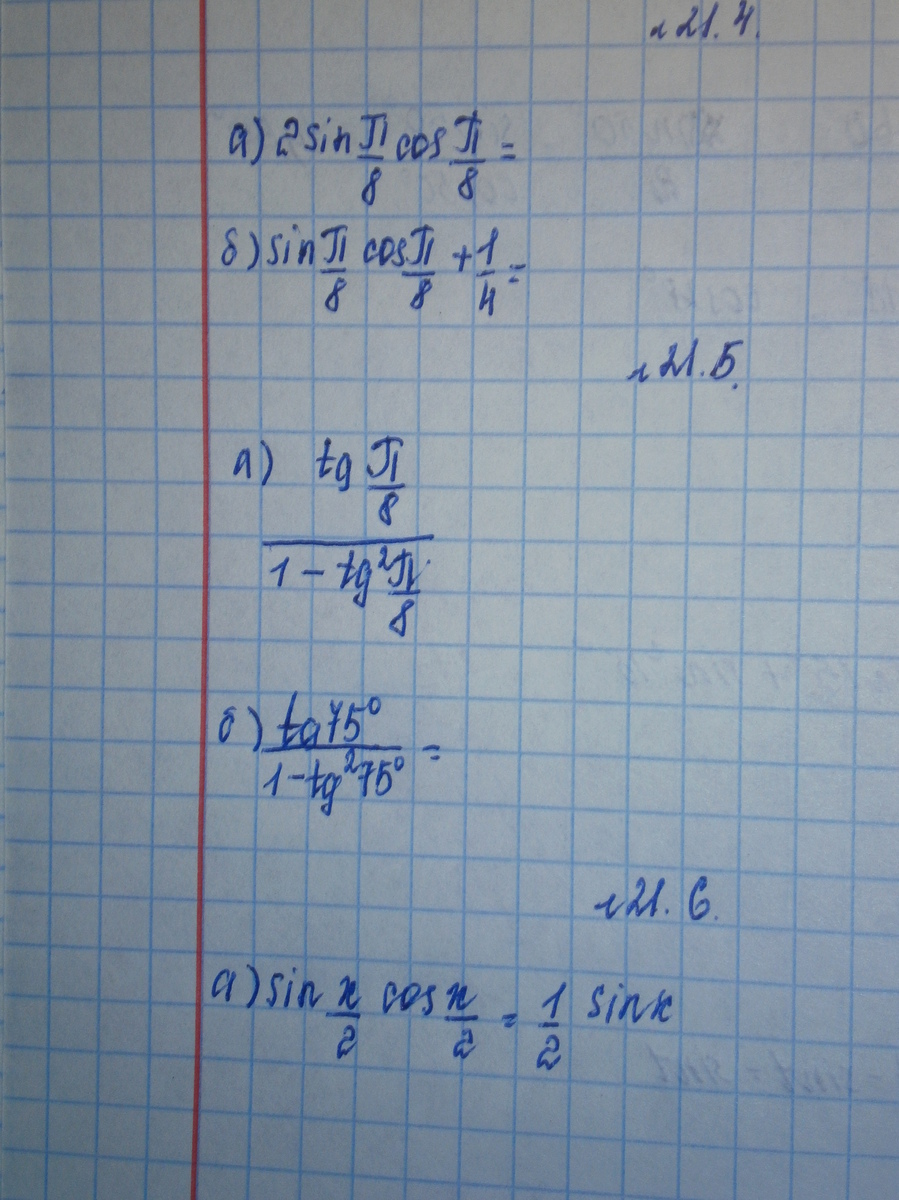 н 21.4.
а) 2 sin π/8 cos π/8 =
б) sin π/8 cos π/8 + 1/4 =
н 21.5.
а) tg π/8
1 - tg² π/8
б) tg 75°
1 - tg² 75° =
н 21.6.
а) sin x/2 cos x/2 = 1/2 sin x